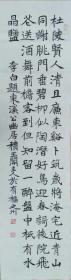 杜陵賢人清且廉東谿卜筑歲將淹宅近青山
同謝朓門垂碧柳似陶潛好鳥迎春歌後院飛
花送酒舞前檐客到但知留一醉盤中祇有水
晶鹽 李白題東谿公幽居